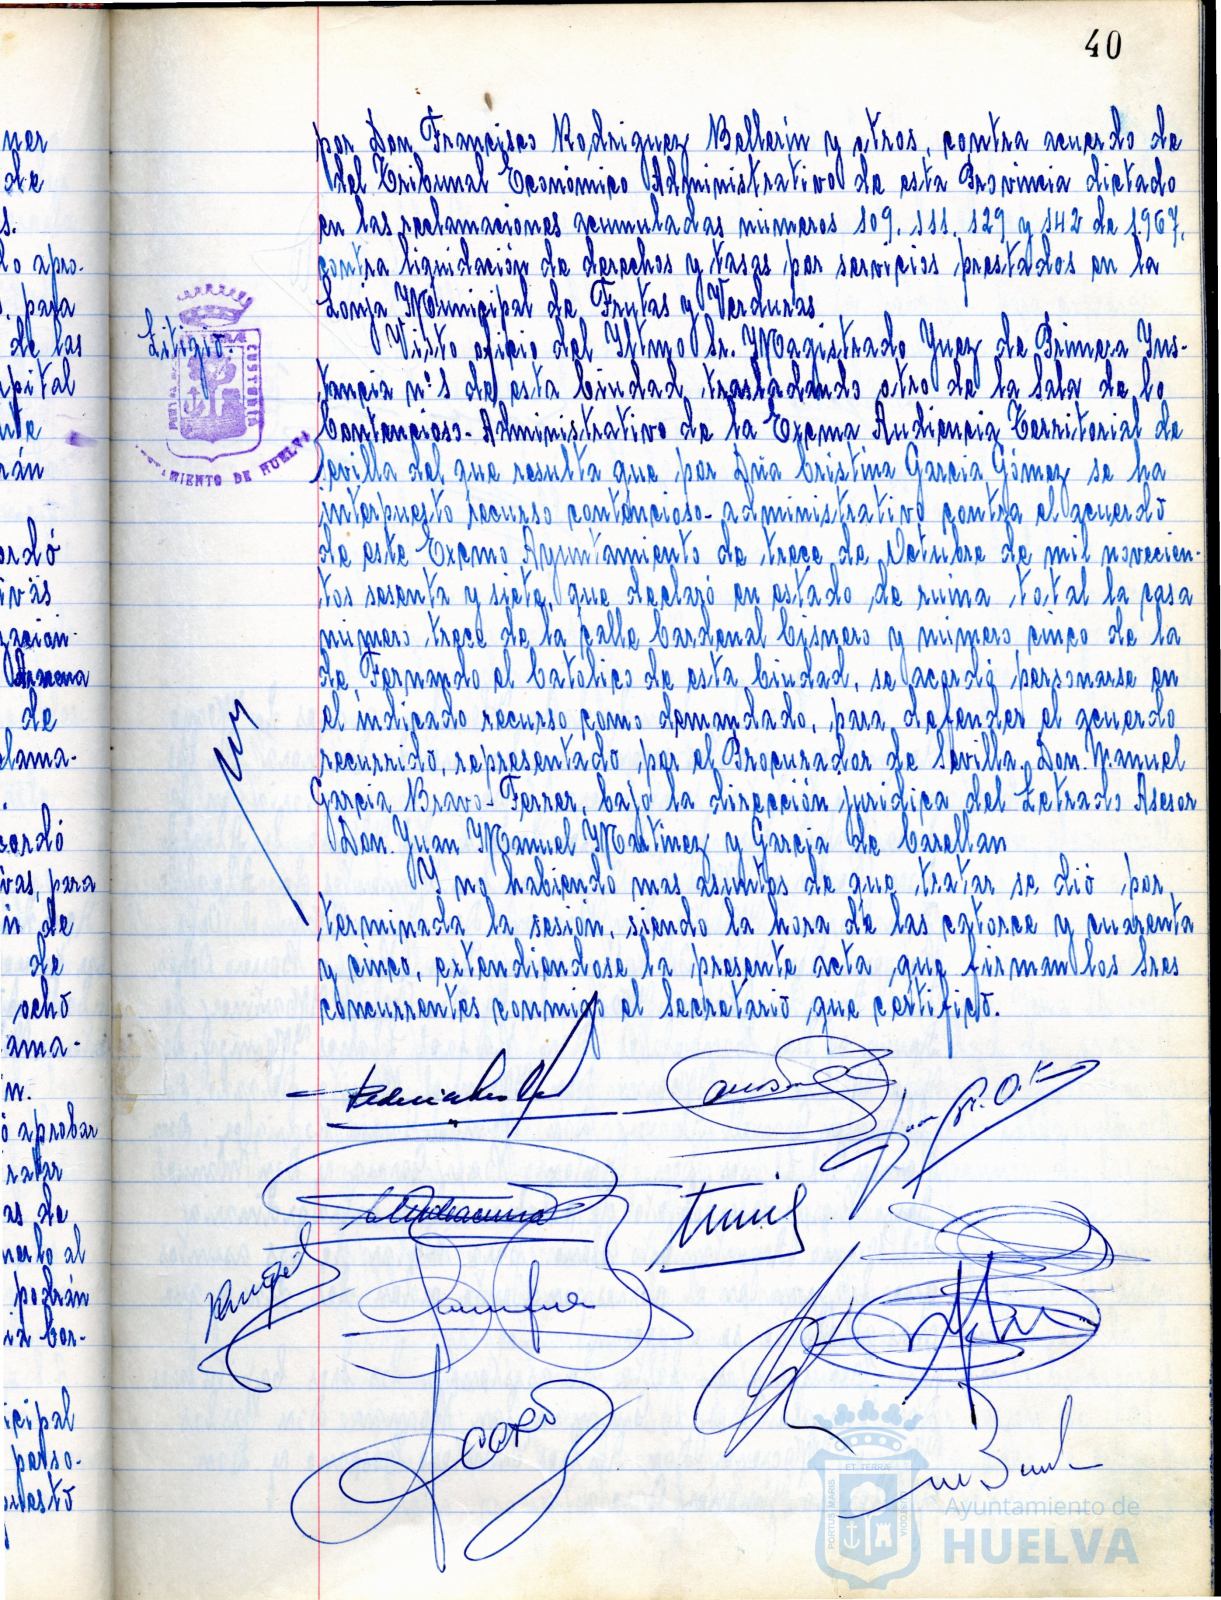 40
por Don Francisco Rodriguez Ballerin y otros, contra acuerdo de
del Tribunal Económico Administrativo de esta Provincia dictado
en las reclamaciones acumuladas números 109. 111. 129 y 142 de 1.967,
contra liquidación de derechos y tasas por servicios prestados en la
Lonja Municipal de Frutas y Verduras
Litigio.
Visto oficio del Iltmo Sr. Magistrado Juez de Primera Ins-
tancia nº 1 de esta Ciudad, trasladando otro de la Sala de lo
Contencioso-Administrativo de la Excma Audiencia Territorial de
Sevilla del que resulta que por Dña Cristina Garcia Gómez se ha
interpuesto recurso contencioso-administrativo contra el acuerdo
de este Excmo Ayuntamiento de trece de Octubre de mil novecien-
tos sesenta y siete, que declaró en estado de ruina total la casa
número trece de la calle Cardenal Cisnero y número cinco de la
de Fernando el Católico de esta Ciudad, se acordó personarse en
el indicado recurso como demandado, para defender el acuerdo
recurrido, representado por el Procurador de Sevilla Don. Manuel
Garcia Bravo-Ferrer, bajo la dirección juridica del Letrado Asesor
Don. Juan Manuel Martinez y Garcia de
Y no habiendo mas asuntos de que tratar se dió por
terminada la sesión, siendo la hora de las catorce y cuarenta
y cinco, extendiendose la presente acta que firman los Sres
concurrentes conmigo el Secretario que certifico.
PORTUS MARIS ET TERRAE CUSTODIA
Ayuntamiento de
HUELVA